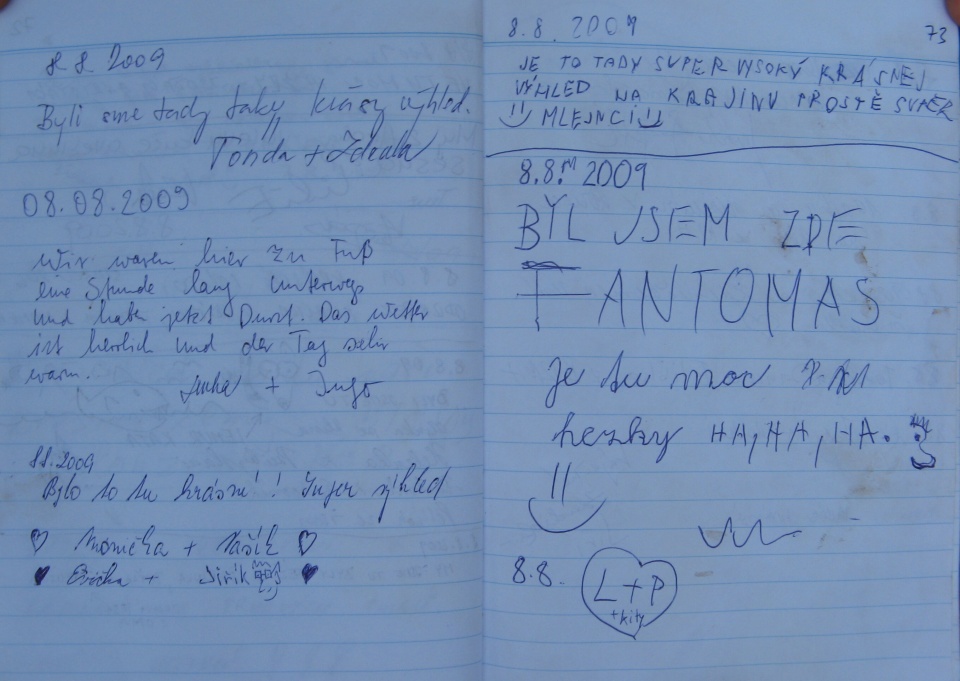 8.8. 2009
Byli sme tady taky, krásný výhled.
Tonda +
08.08.2009
Wir waren hier zu Fuß
eine Stunde lang unterwegs
und haben jetzt Durst. Das Wetter
ist herrlich und der Tag sehr
warm.
+ Ingo
8.8.2009
Bylo to tu krásné! Super výhled
Monička + Vašík
+ Jiřík
8.8. 2009
73
JE TO TADY SUPER VYSOKÝ KRÁSNEJ
VÝHLED NA KRAJINU PROSTĚ SUPER
MLEJNCI
8.8. 2009
BYL JSEM ZDE
FANTOMAS
Je tu moc
hezky HA, HA, HA.
8.8.
L+P
+kity